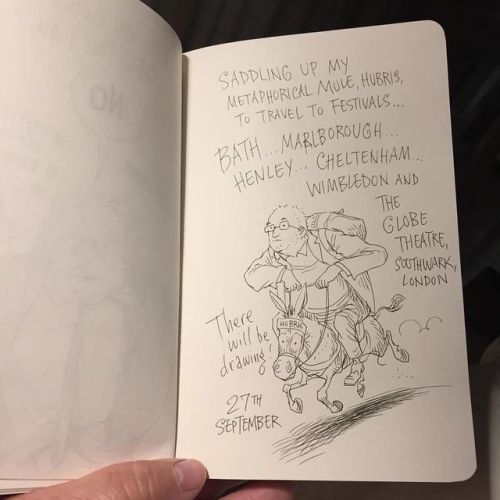 SADDLING UP MY
METAPHORICAL MULE, HUBRIS,
TO TRAVEL TO FESTIVALS...
BATH... MARLBOROUGH...
HENLEY... CHELTENHAM...
WIMBLEDON AND
THE
GLOBE
THEATRE,
SOUTHWARK,
LONDON
There
will be
drawing!
HUBRIS
27TH
SEPTEMBER
NO